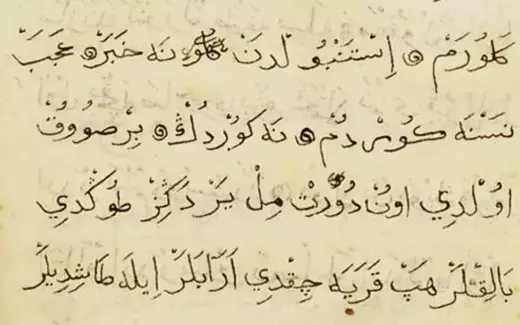 كَلُورَمْ ۞ إِسْتَنْبُولْدَنْ نَه خَبَرْ ۞ عَجَبْ
نَسْنَه كُورْدُمْ ۞ نَه كُورْدُڭْ ۞ بِرْ صُووُقْ
اُولْدِي اونْ دُورْتْ مِلْ يَرْ دَكِزْ طُوكْدِي
بَالِقْلَرْ هَپْ قَرَيَه چِقْدِي اَرَابَلَرْ اِيلَه طَاشِدِيلَرْ